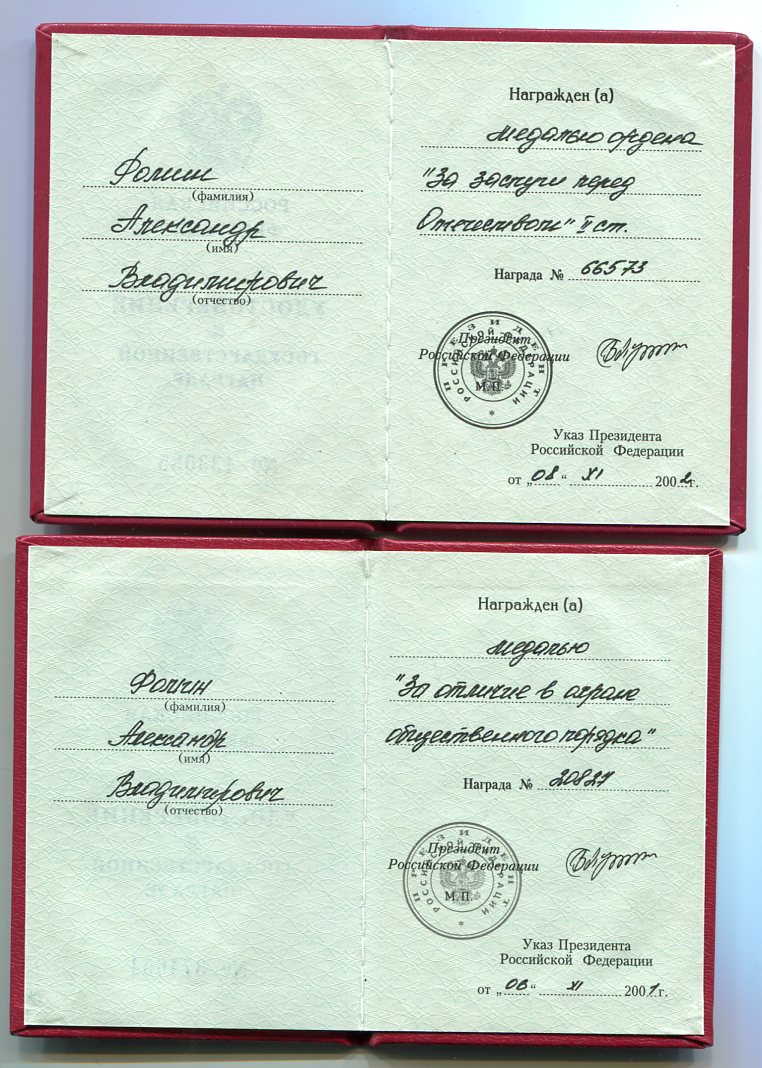 Фомин
(фамилия)
Александр
(имя)
Владимирович
(отчество)
Награжден (а)
медалью ордена
"За заслуги перед
Отечеством" II ст.
Награда № 66573
ПРЕЗИДЕНТ
РОССИЙСКОЙ ФЕДЕРАЦИИ
Президент
Российской Федерации
М.П.
Указ Президента
Российской Федерации
от „08“ XI 2002г.
Фомин
(фамилия)
Александр
(имя)
Владимирович
(отчество)
Награжден (а)
медалью
"За отличие в охране
общественного порядка"
Награда № 20827
ПРЕЗИДЕНТ
РОССИЙСКОЙ ФЕДЕРАЦИИ
Президент
Российской Федерации
М.П.
Указ Президента
Российской Федерации
от „06“ XI 2001г.